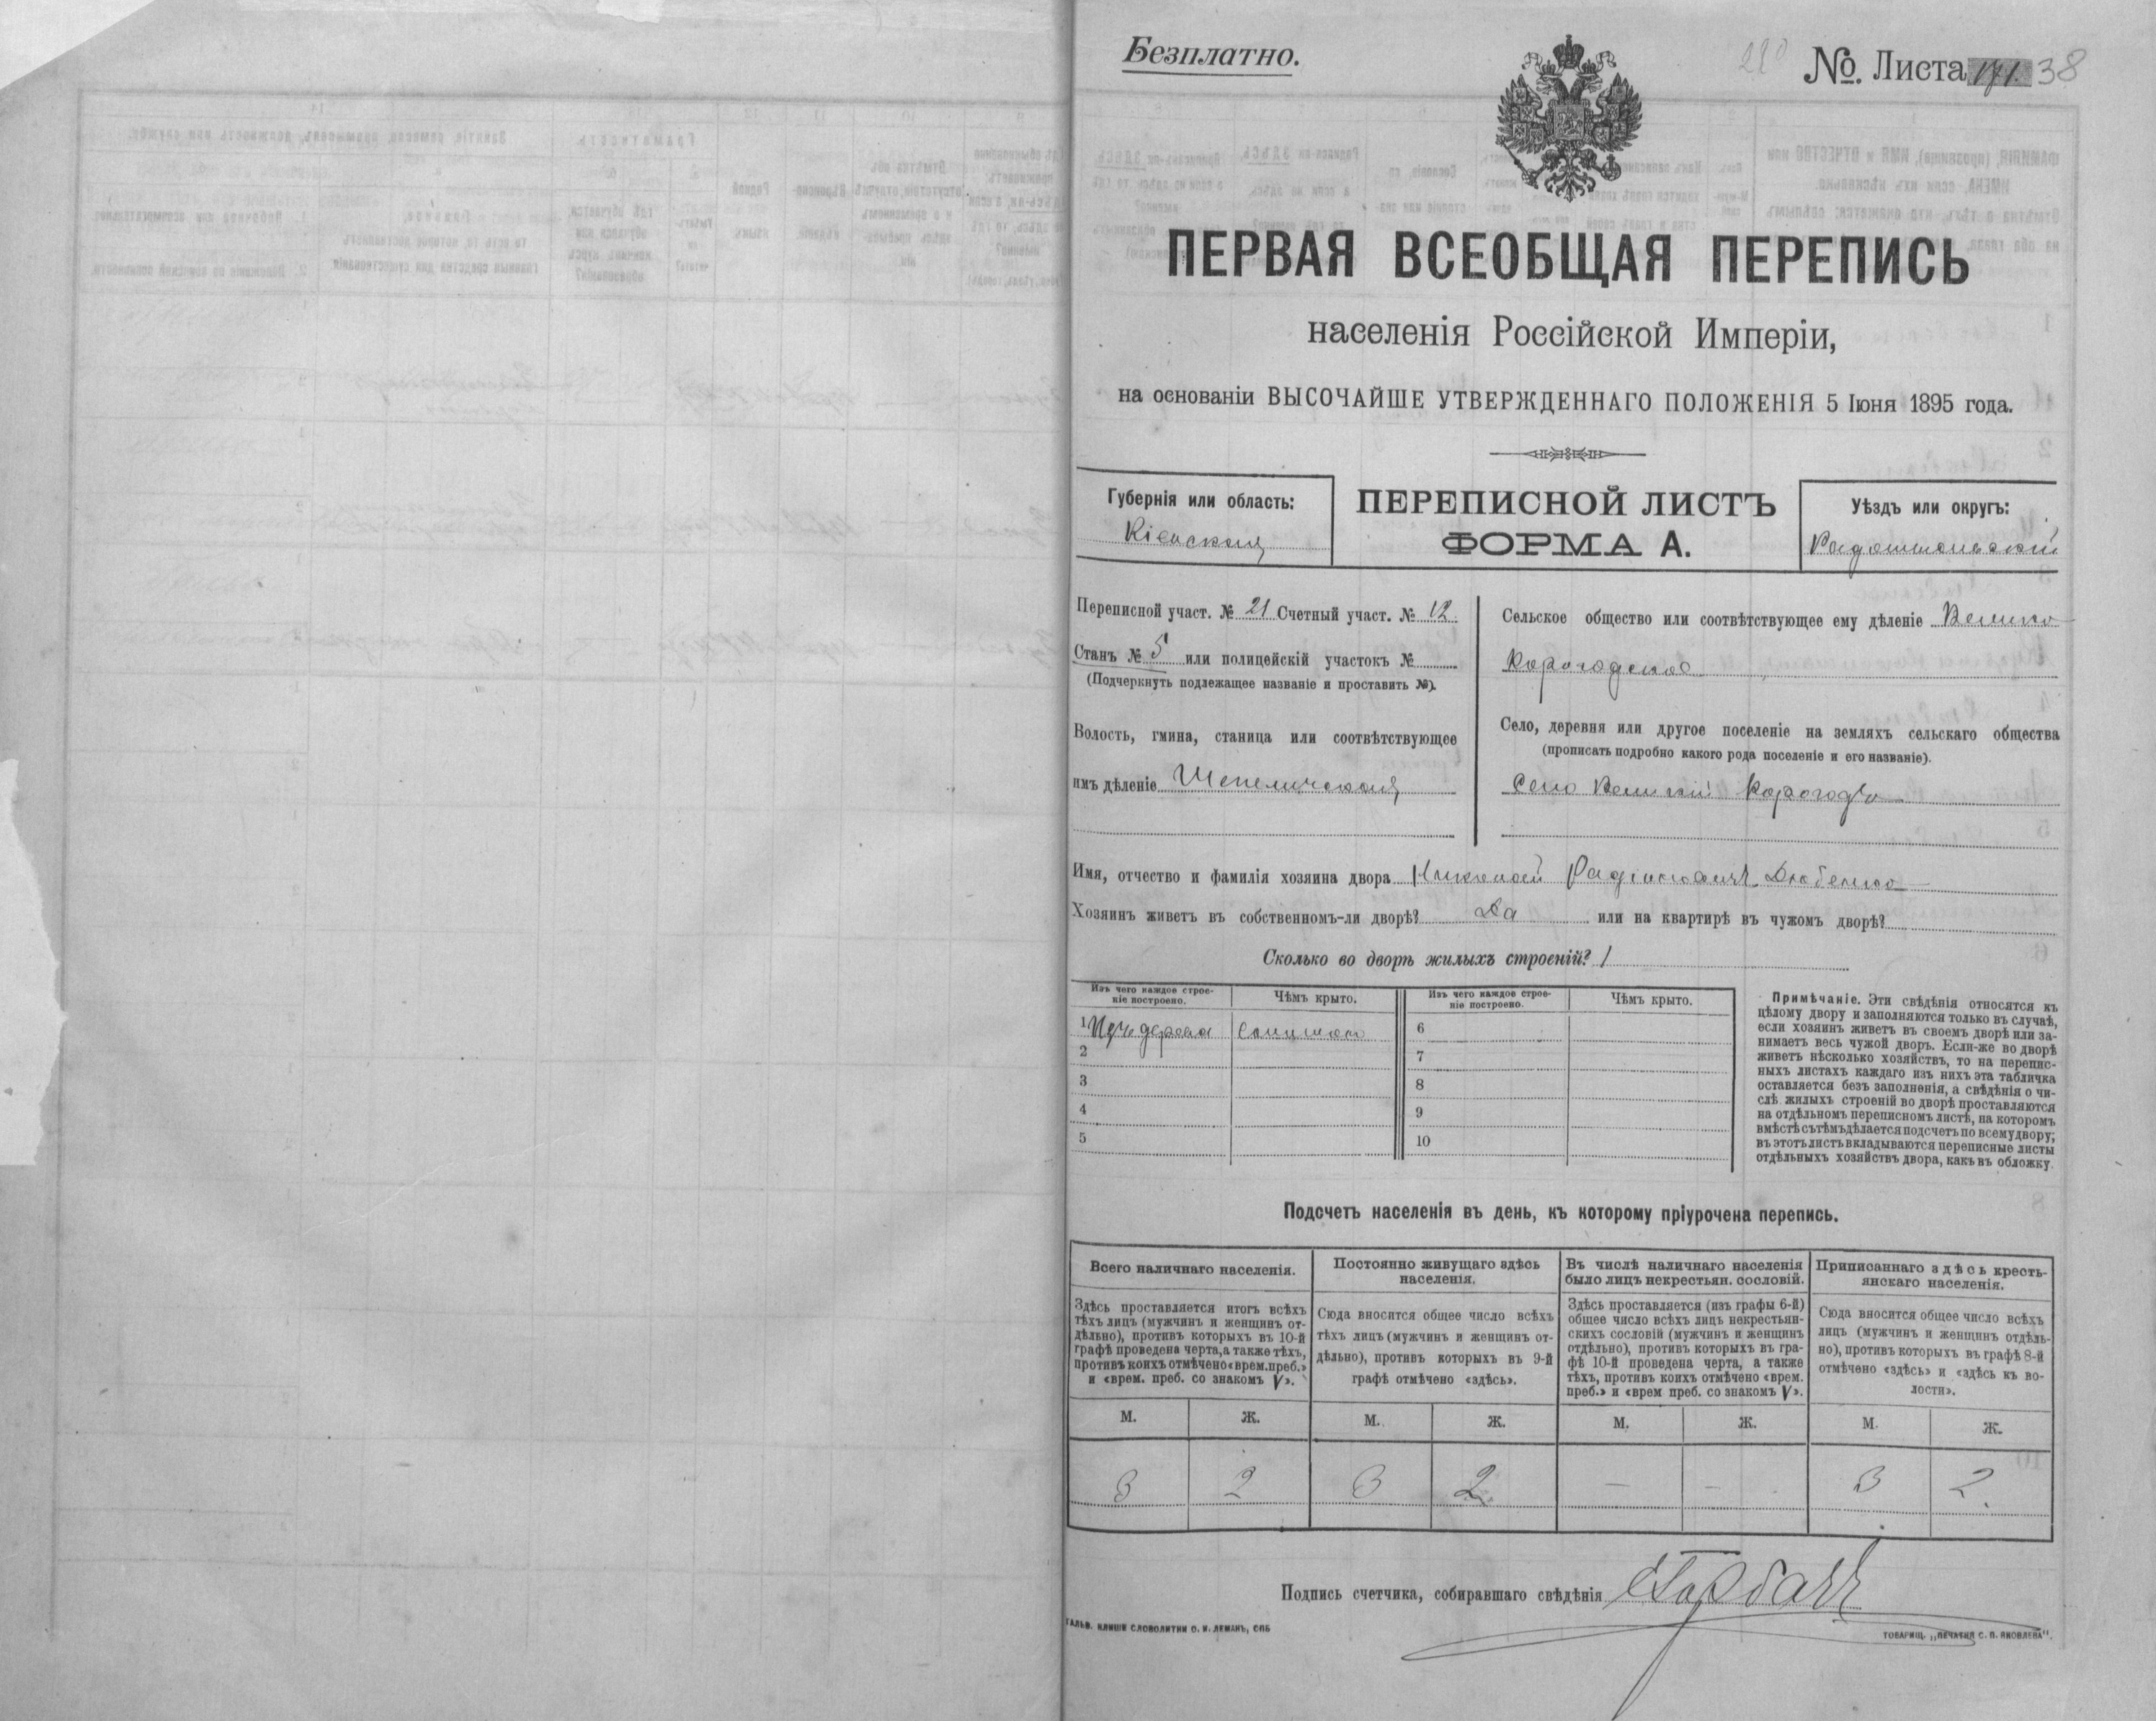 Безплатно.
№. Листа 171. 38
ПЕРВАЯ ВСЕОБЩАЯ ПЕРЕПИСЬ
населенія Россійской Имперіи,
на основаніи ВЫСОЧАЙШЕ УТВЕРЖДЕННАГО ПОЛОЖЕНІЯ 5 Іюня 1895 года.
Губернія или область:
Кіевская
ПЕРЕПИСНОЙ ЛИСТЪ
ФОРМА А.
Уѣздъ или округъ:
Радомысльскій
Переписной участ. № 21 Счетный участ. № 12.
Станъ № 5 или полицейскій участокъ №
(Подчеркнуть подлежащее названіе и проставить №).
Волость, гмина, станица или соотвѣтствующее
имъ дѣленіе Шепеличская
Сельское общество или соотвѣтствующее ему дѣленіе Велико
Корогодское
Село, деревня или другое поселеніе на земляхъ сельскаго общества
(прописать подробно какого рода поселеніе и его названіе).
Село Великій Корогодъ
Имя, отчество и фамилія хозяина двора Николай Радіоновичъ Дзюбенко
Хозяинъ живетъ въ собственномъ-ли дворѣ? Да или на квартирѣ въ чужомъ дворѣ?
Сколько во дворѣ жилыхъ строеній? 1
Изъ чего каждое строе-
ніе построено.
Чѣмъ крыто.
Изъ чего каждое строе-
ніе построено.
Чѣмъ крыто.
1 Изъ дерева соломою 6
2 7
3 8
4 9
5 10
Примѣчаніе. Эти свѣдѣнія относятся къ
цѣлому двору и заполняются только въ случаѣ,
если хозяинъ живетъ въ своемъ дворѣ или за-
нимаетъ весь чужой дворъ. Если-же во дворѣ
живетъ нѣсколько хозяйствъ, то на перепис-
ныхъ листахъ каждаго изъ нихъ эта табличка
оставляется безъ заполненія, а свѣдѣнія о чи-
слѣ жилыхъ строеній во дворѣ проставляются
на отдѣльномъ переписномъ листѣ, на которомъ
вмѣстѣ съ тѣмъ дѣлается подсчетъ по всему двору;
въ этотъ листъ вкладываются переписные листы
отдѣльныхъ хозяйствъ двора, какъ въ обложку.
Подсчетъ населенія въ день, къ которому пріурочена перепись.
Всего наличнаго населенія.
Здѣсь проставляется итогъ всѣхъ
тѣхъ лицъ (мужчинъ и женщинъ от-
дѣльно), противъ которыхъ въ 10-й
графѣ проведена черта, а также тѣхъ,
противъ коихъ отмѣчено «врем. преб.»
и «врем. преб. со знакомъ V».
Постоянно живущаго здѣсь
населенія.
Сюда вносится общее число всѣхъ
тѣхъ лицъ (мужчинъ и женщинъ от-
дѣльно), противъ которыхъ въ 9-й
графѣ отмѣчено «здѣсь».
Въ числѣ наличнаго населенія
было лицъ некрестьян. сословій.
Здѣсь проставляется (изъ графы 6-й)
общее число всѣхъ лицъ некрестьян-
скихъ сословій (мужчинъ и женщинъ
отдѣльно), противъ которыхъ въ гра-
фѣ 10-й проведена черта, а также
тѣхъ, противъ коихъ отмѣчено «врем.
преб.» и «врем преб. со знакомъ V».
Приписаннаго здѣсь кресть-
янскаго населенія.
Сюда вносится общее число всѣхъ
лицъ (мужчинъ и женщинъ отдѣль-
но), противъ которыхъ въ графѣ 8-й
отмѣчено «здѣсь» и «здѣсь къ во-
лости».
М. Ж. М. Ж. М. Ж. М. Ж.
3 2 3 2 — — 3 2.
Подпись счетчика, собиравшаго свѣдѣнія Горбачъ
ГАЛЬВ. КЛИШЕ СЛОВОЛИТНИ О. И. ЛЕМАНЪ, СПБ
ТОВАРИЩ. „ПЕЧАТНЯ С. П. ЯКОВЛЕВА".